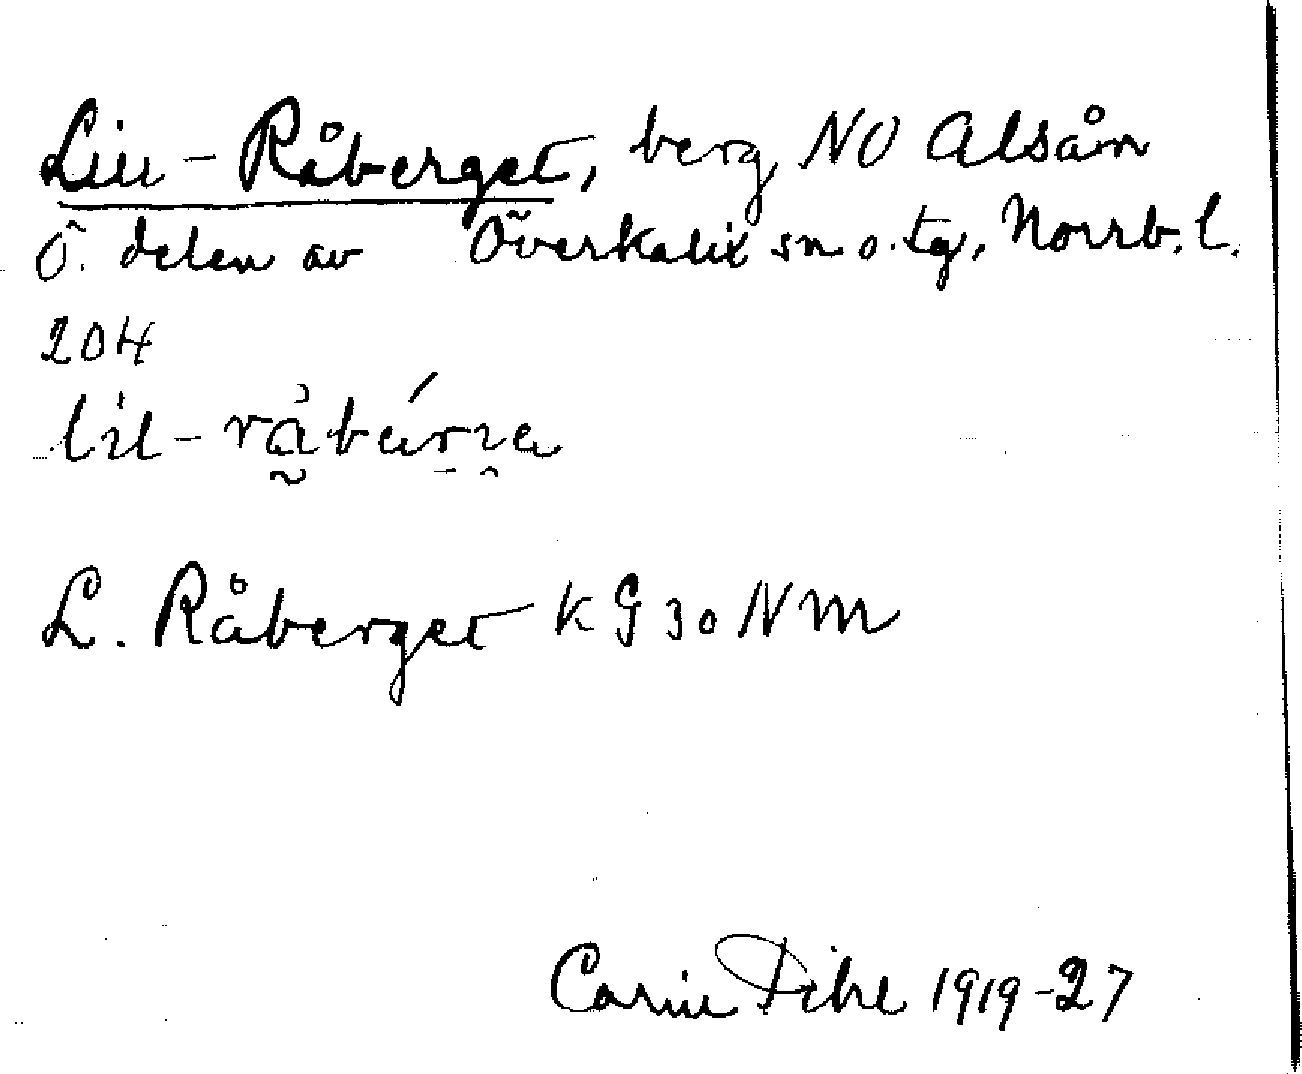 Lill-Råberget, berg NO Alsån
Ö. delen av Överkalix sn o. tg, Norrb. l.
204
L. Råberget KG 30 NM
Carin Pihl 1919-27